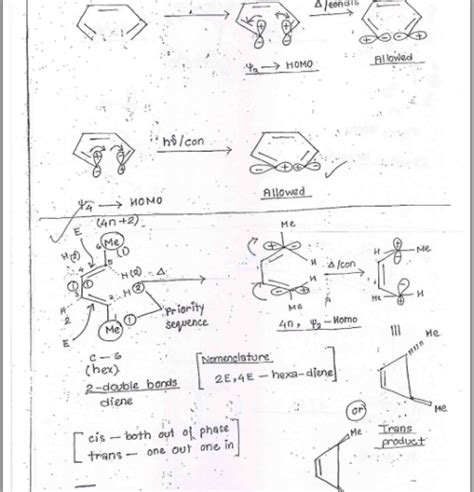 Δ/condis
+ + - -
- + + -
Ψ₃ → HOMO
Allowed
hδ/con
Ψ₄ → HOMO
Allowed
(4n+2)
E
6 Me
H(2)
5
4
H(2)
Δ
3
2
H
2
Priority
sequence
E
Me
C-6
(hex)
2-double bonds
diene
Me
H
H
Me
Δ/con
4n, Ψ₂-Homo
H
Me
Me
H
Nomenclature
2E,4E - hexa-diene
Me
Me
or
Me
Trans
product
cis - both out of phase
trans - one out one in